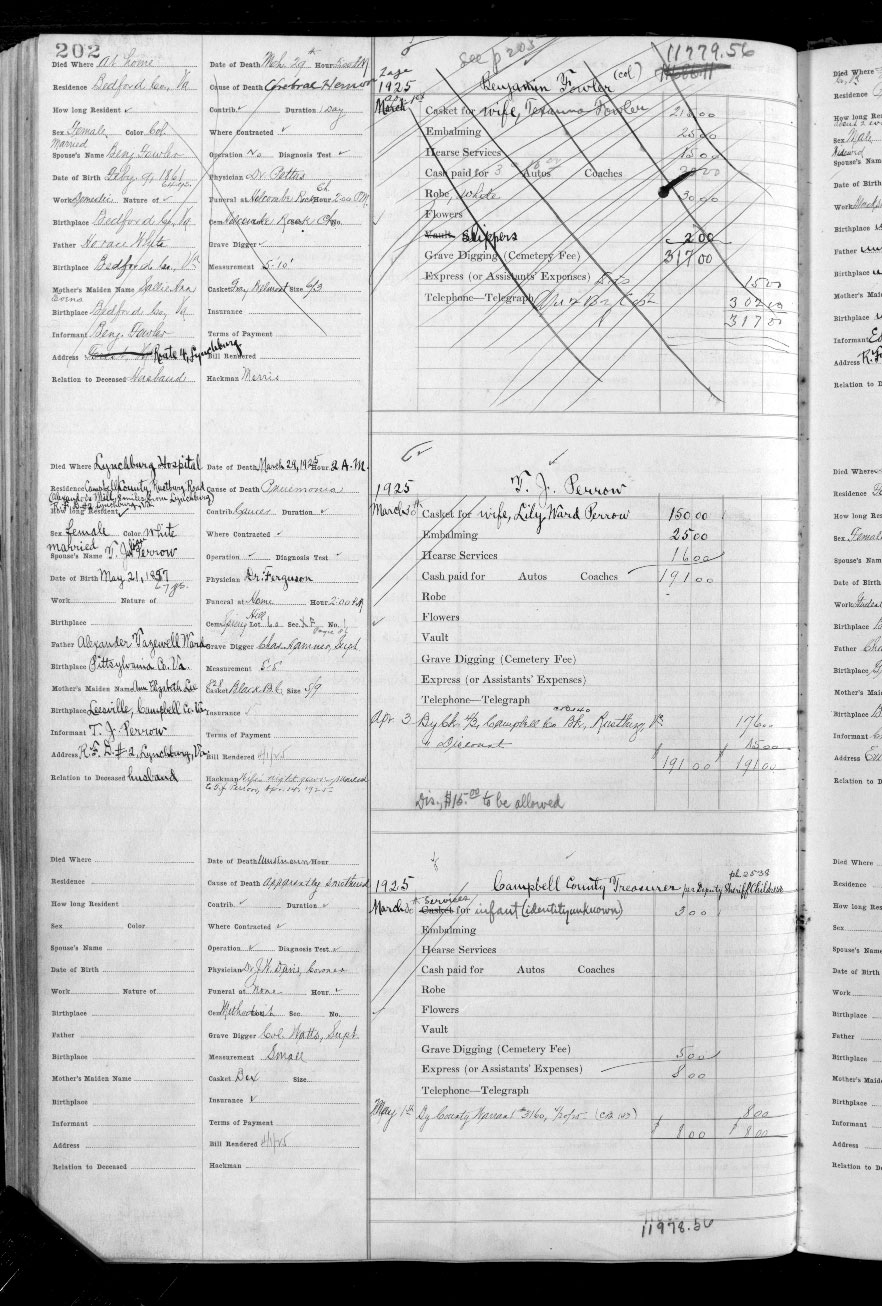 202
Died Where At home
Residence Bedford Co., Va
How long Resident
Sex Female Color Col.
Married
Spouse's Name Benj. Fowler
Date of Birth Feby. 9, 1861
Work Domestic Nature of
Birthplace Bedford Co., Va
Father Horace White
Birthplace Bedford Co., Va
Mother's Maiden Name Sallie Ann
Birthplace Bedford Co., Va
Informant Benj. Fowler
Address Route 4, Lynchburg
Relation to Deceased Husband
Date of Death Mch. 29th Hour
Cause of Death Cerebral Hemorr
Contrib. Duration 1 Day
Where Contracted
Operation No Diagnosis Test
Physician Dr. Pettus
Funeral at Holcomb Rock Ch. Hour 2:00 P.M.
Cem. Holcombe Rock Ch. No.
Grave Digger
Measurement 5-10"
Casket Size 6/3
Insurance
Terms of Payment
Bill Rendered
Hackman Merris
See p 205
11779.56
1925
Benjamin F. Fowler (col)
March
Casket for wife, Texanna Fowler 215 00
Embalming 25 00
Hearse Services 15 00
Cash paid for 3 Autos Coaches
Robe, White 30 00
Flowers
Vault Slippers 2 00
Grave Digging (Cemetery Fee) 317 00
Express (or Assistants' Expenses) 15 00
Telephone—Telegraph 302 00
317 0
Died Where Lynchburg Hospital
Residence Campbell County, Rustburg Road
(Alexander's Mill, 3 miles from Lynchburg)
R. F. D. #2 Lynchburg, Va
How long Resident
Sex female Color White
married
Spouse's Name T. J. Perrow
Date of Birth May 21, 1857
67 yrs.
Work Nature of
Birthplace
Father Alexander Tazewell Ward
Birthplace Pittsylvania Co. Va.
Mother's Maiden Name Ann Elizabeth Lee
Birthplace Leesville, Campbell Co. Va
Informant T. J. Perrow
Address R. F. D. #2, Lynchburg, Va.
Relation to Deceased husband
Date of Death March 29, 1925 Hour 2 A.M.
Cause of Death Pneumonia
Contrib. Duration
Where Contracted
Operation Diagnosis Test
Physician Dr. Ferguson
Funeral at Home Hour 2:00 P.M.
Cem. Spring Hill Lot 60 Sec. No.
Grave Digger Chas. Hammer, Supt.
Measurement 5-5"
Casket Black B.C. Size 5/9
Insurance
Terms of Payment
Bill Rendered 4/1/25
Hackman
1925
T. J. Perrow
March 30th Casket for wife, Lily Ward Perrow 150 00
Embalming 25 00
Hearse Services 16 00
Cash paid for Autos Coaches 191 00
Robe
Flowers
Vault
Grave Digging (Cemetery Fee)
Express (or Assistants' Expenses)
Telephone—Telegraph
Apr 3 By Ck. Campbell Co Bk., Rustburg, Va 176 00
" Discount 15 00
$ 191 00 $ 191 00
Dis., $15.00 to be allowed
Died Where
Residence
How long Resident
Sex Color
Spouse's Name
Date of Birth
Work Nature of
Birthplace
Father
Birthplace
Mother's Maiden Name
Birthplace
Informant
Address
Relation to Deceased
Date of Death Unknown Hour
Cause of Death apparently smothered
Contrib. Duration
Where Contracted
Operation Diagnosis Test
Physician Dr. J. H. Davis, Coroner
Funeral at None Hour
Cem. Methodist Lot Sec. No.
Grave Digger Col. Watts, Supt.
Measurement Small
Casket Box Size
Insurance
Terms of Payment
Bill Rendered 4/1/25
Hackman
ph 2538
1925
Campbell County Treasurer per Deputy Sheriff Childress
March 30th Services
Casket for infant (identity unknown) 3 00
Embalming
Hearse Services
Cash paid for Autos Coaches
Robe
Flowers
Vault
Grave Digging (Cemetery Fee) 5 00
Express (or Assistants' Expenses) 8 00
Telephone—Telegraph
May 1st By County Warrant #3160, 8 00
$ 8 00 $ 8 00
11978.56